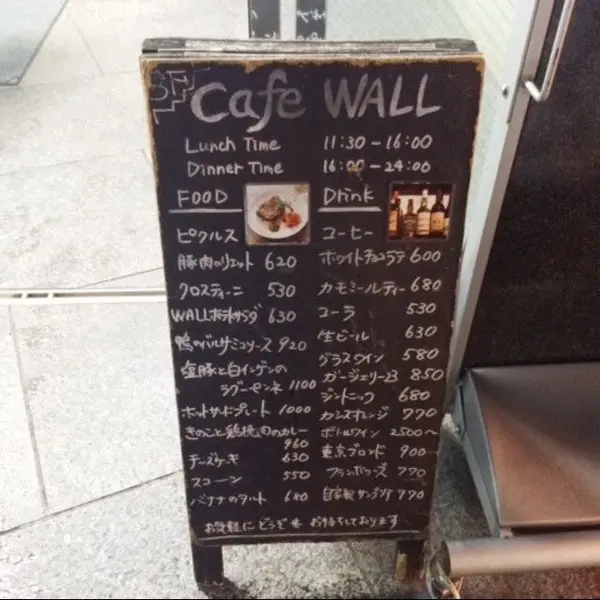 3F Cafe WALL
Lunch Time 11:30-16:00
Dinner Time 16:00-24:00
FOOD
ピクルス
豚肉のリエット 620
クロスティーニ 530
WALLポテトサラダ 630
鴨のバルサミコソース 920
塩豚と白インゲンの
ラグーペンネ 1100
ホットサンドプレート 1000
きのこと鶏挽肉のカレー
960
チーズケーキ 630
スコーン 550
バナナのタルト 680
Drink
コーヒー
ホワイトチョコラテ 600
カモミールティー 680
コーラ 530
生ビール 630
グラスワイン 580
ガージェリー23 850
ジントニック 680
カシスオレンジ 770
ボトルワイン 2500〜
東京ブロンド 900
フランボワーズ 770
自家製サングリア 770
お気軽にどうぞ お待ちしております